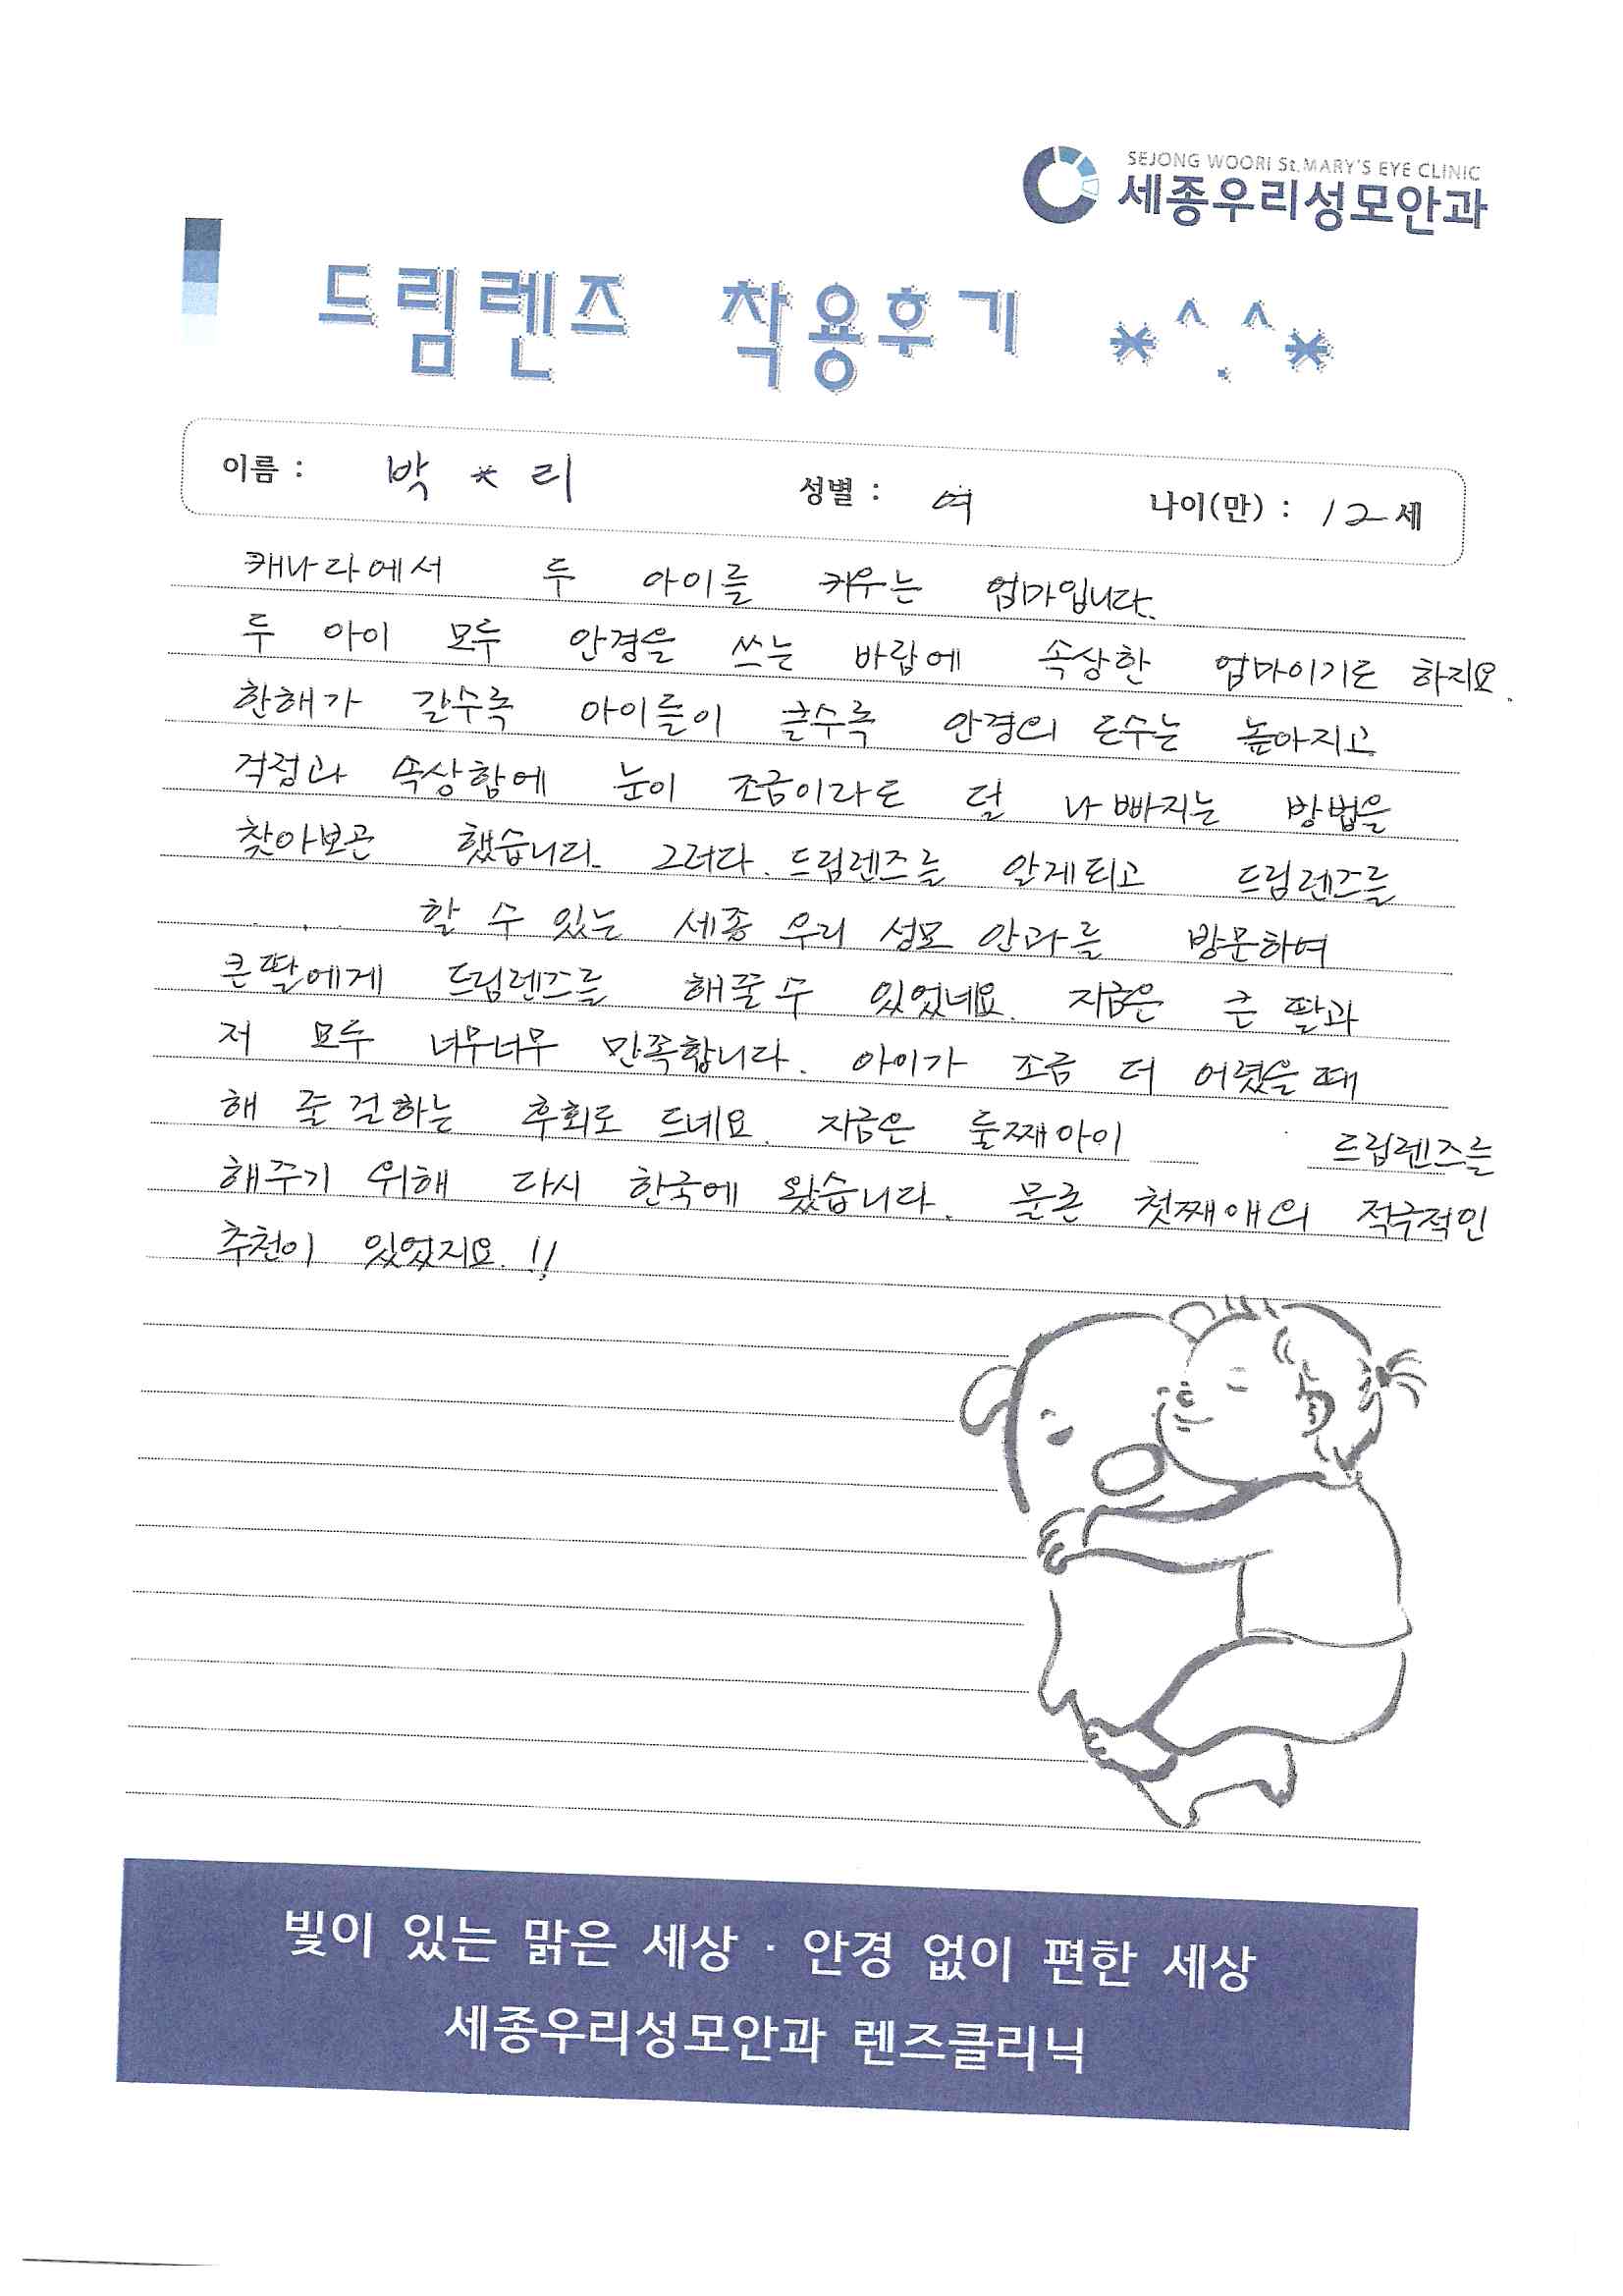 SEJONG WOORI St.MARY'S EYE CLINIC
세종우리성모안과
드림렌즈 착용후기 *^.^*
이름 : 박 * 리 성별 : 여 나이(만) : 12세
캐나라에서 두 아이를 키우는 엄마입니다.
두 아이 모두 안경을 쓰는 바람에 속상한 엄마이기도 하지요.
한해가 갈수록 아이들이 클수록 안경의 도수는 높아지고
걱정과 속상함에 눈이 조금이라도 덜 나빠지는 방법을
찾아보곤 했습니다. 그러다. 드림렌즈를 알게되고 드림렌즈를
할 수 있는 세종 우리 성모 안과를 방문하여
큰딸에게 드림렌즈를 해줄 수 있었네요. 지금은 큰 딸과
저 모두 너무너무 만족합니다. 아이가 조금 더 어렸을 때
해 줄 걸하는 후회도 드네요. 지금은 둘째아이 드림렌즈를
해주기 위해 다시 한국에 왔습니다. 물론 첫째애의 적극적인
추천이 있었지요.!!
빛이 있는 맑은 세상 · 안경 없이 편한 세상
세종우리성모안과 렌즈클리닉